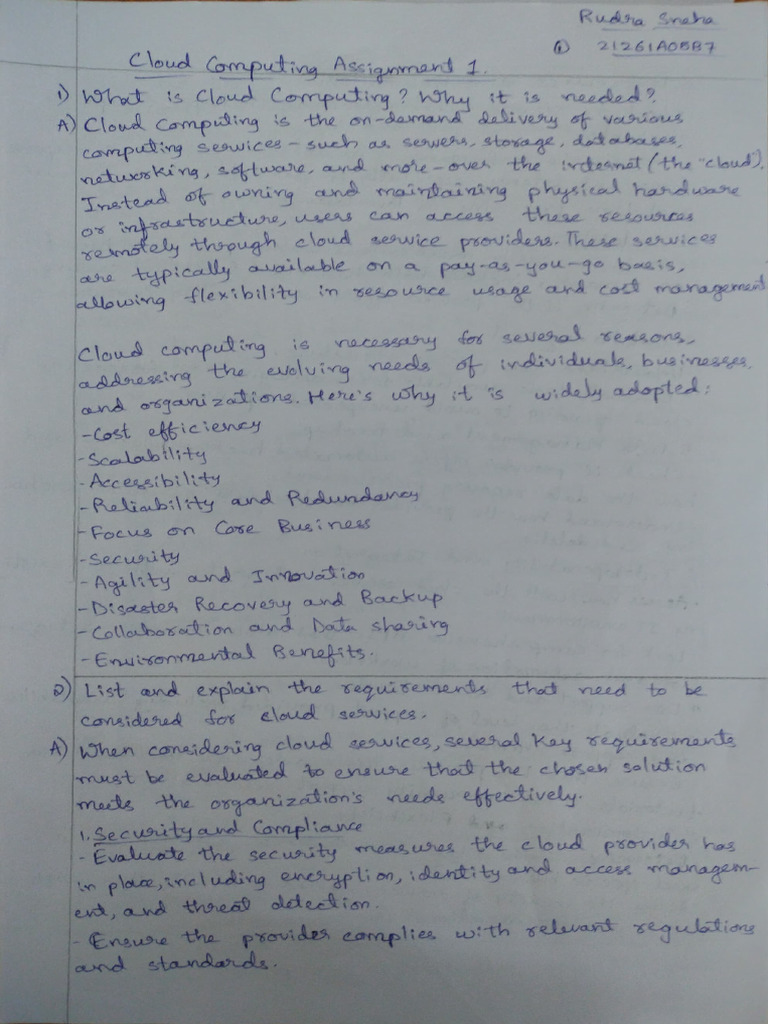 Rudra Sneha
① 21261A05B7
Cloud Computing Assignment 1.
1) What is Cloud Computing? Why it is needed?
A) Cloud Computing is the on-demand delivery of various
computing services - such as servers, storage, databases,
networking, software, and more - over the internet (the "cloud").
Instead of owning and maintaining physical hardware
or infrastructure, users can access these resources
remotely through cloud service providers. These services
are typically available on a pay-as-you-go basis,
allowing flexibility in resource usage and cost management
Cloud computing is necessary for several reasons,
addressing the evolving needs of individuals, businesses,
and organizations. Here's why it is widely adopted:
- Cost efficiency
- Scalability
- Accessibility
- Reliability and Redundancy
- Focus on Core Business
- Security
- Agility and Innovation
- Disaster Recovery and Backup
- Collaboration and Data sharing
- Environmental Benefits.
2) List and explain the requirements that need to be
considered for cloud services.
A) When considering cloud services, several key requirements
must be evaluated to ensure that the chosen solution
meets the organization's needs effectively.
1. Security and Compliance
- Evaluate the security measures the cloud provider has
in place, including encryption, identity and access managem-
ent, and threat detection.
- Ensure the provider complies with relevant regulations
and standards.